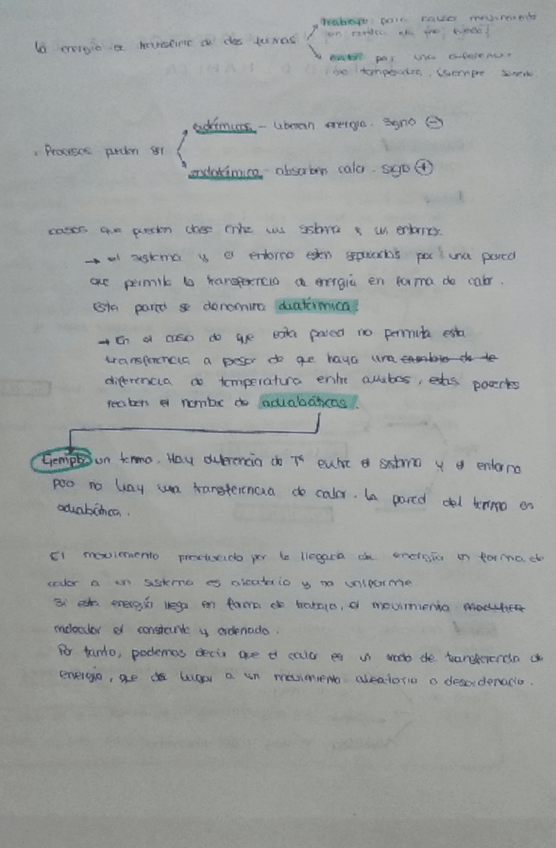 trabajo para causar movimiento
la energía se transfiere de dos formas
en contra de
calor por una diferencia
de temperatura. (siempre
exotérmicos - liberan energía. signo ⊖
. Procesos pueden ser
endotérmico - absorben calor. signo ⊕
casos que pueden darse entre un sistema y un entorno:
→ el sistema y el entorno están separados por una pared
que permite la transferencia de energía en forma de calor.
Esta pared se denomina diatérmica.
→ En el caso de que esta pared no permita esta
transferencia a pesar de que haya una
diferencia de temperatura entre ambos, estas paredes
reciben el nombre de adiabáticas.
Ejemplo un termo. Hay diferencia de Tª entre el sistema y el entorno
pero no hay una transferencia de calor. La pared del termo es
adiabática.
El movimiento producido por la llegada de energía en forma de
calor a un sistema es aleatorio y no uniforme.
Si esta energía llega en forma de trabajo, el movimiento
molecular es constante y ordenado.
Por tanto, podemos decir que el calor es un modo de transferencia de
energía, que da lugar a un movimiento aleatorio o desordenado.